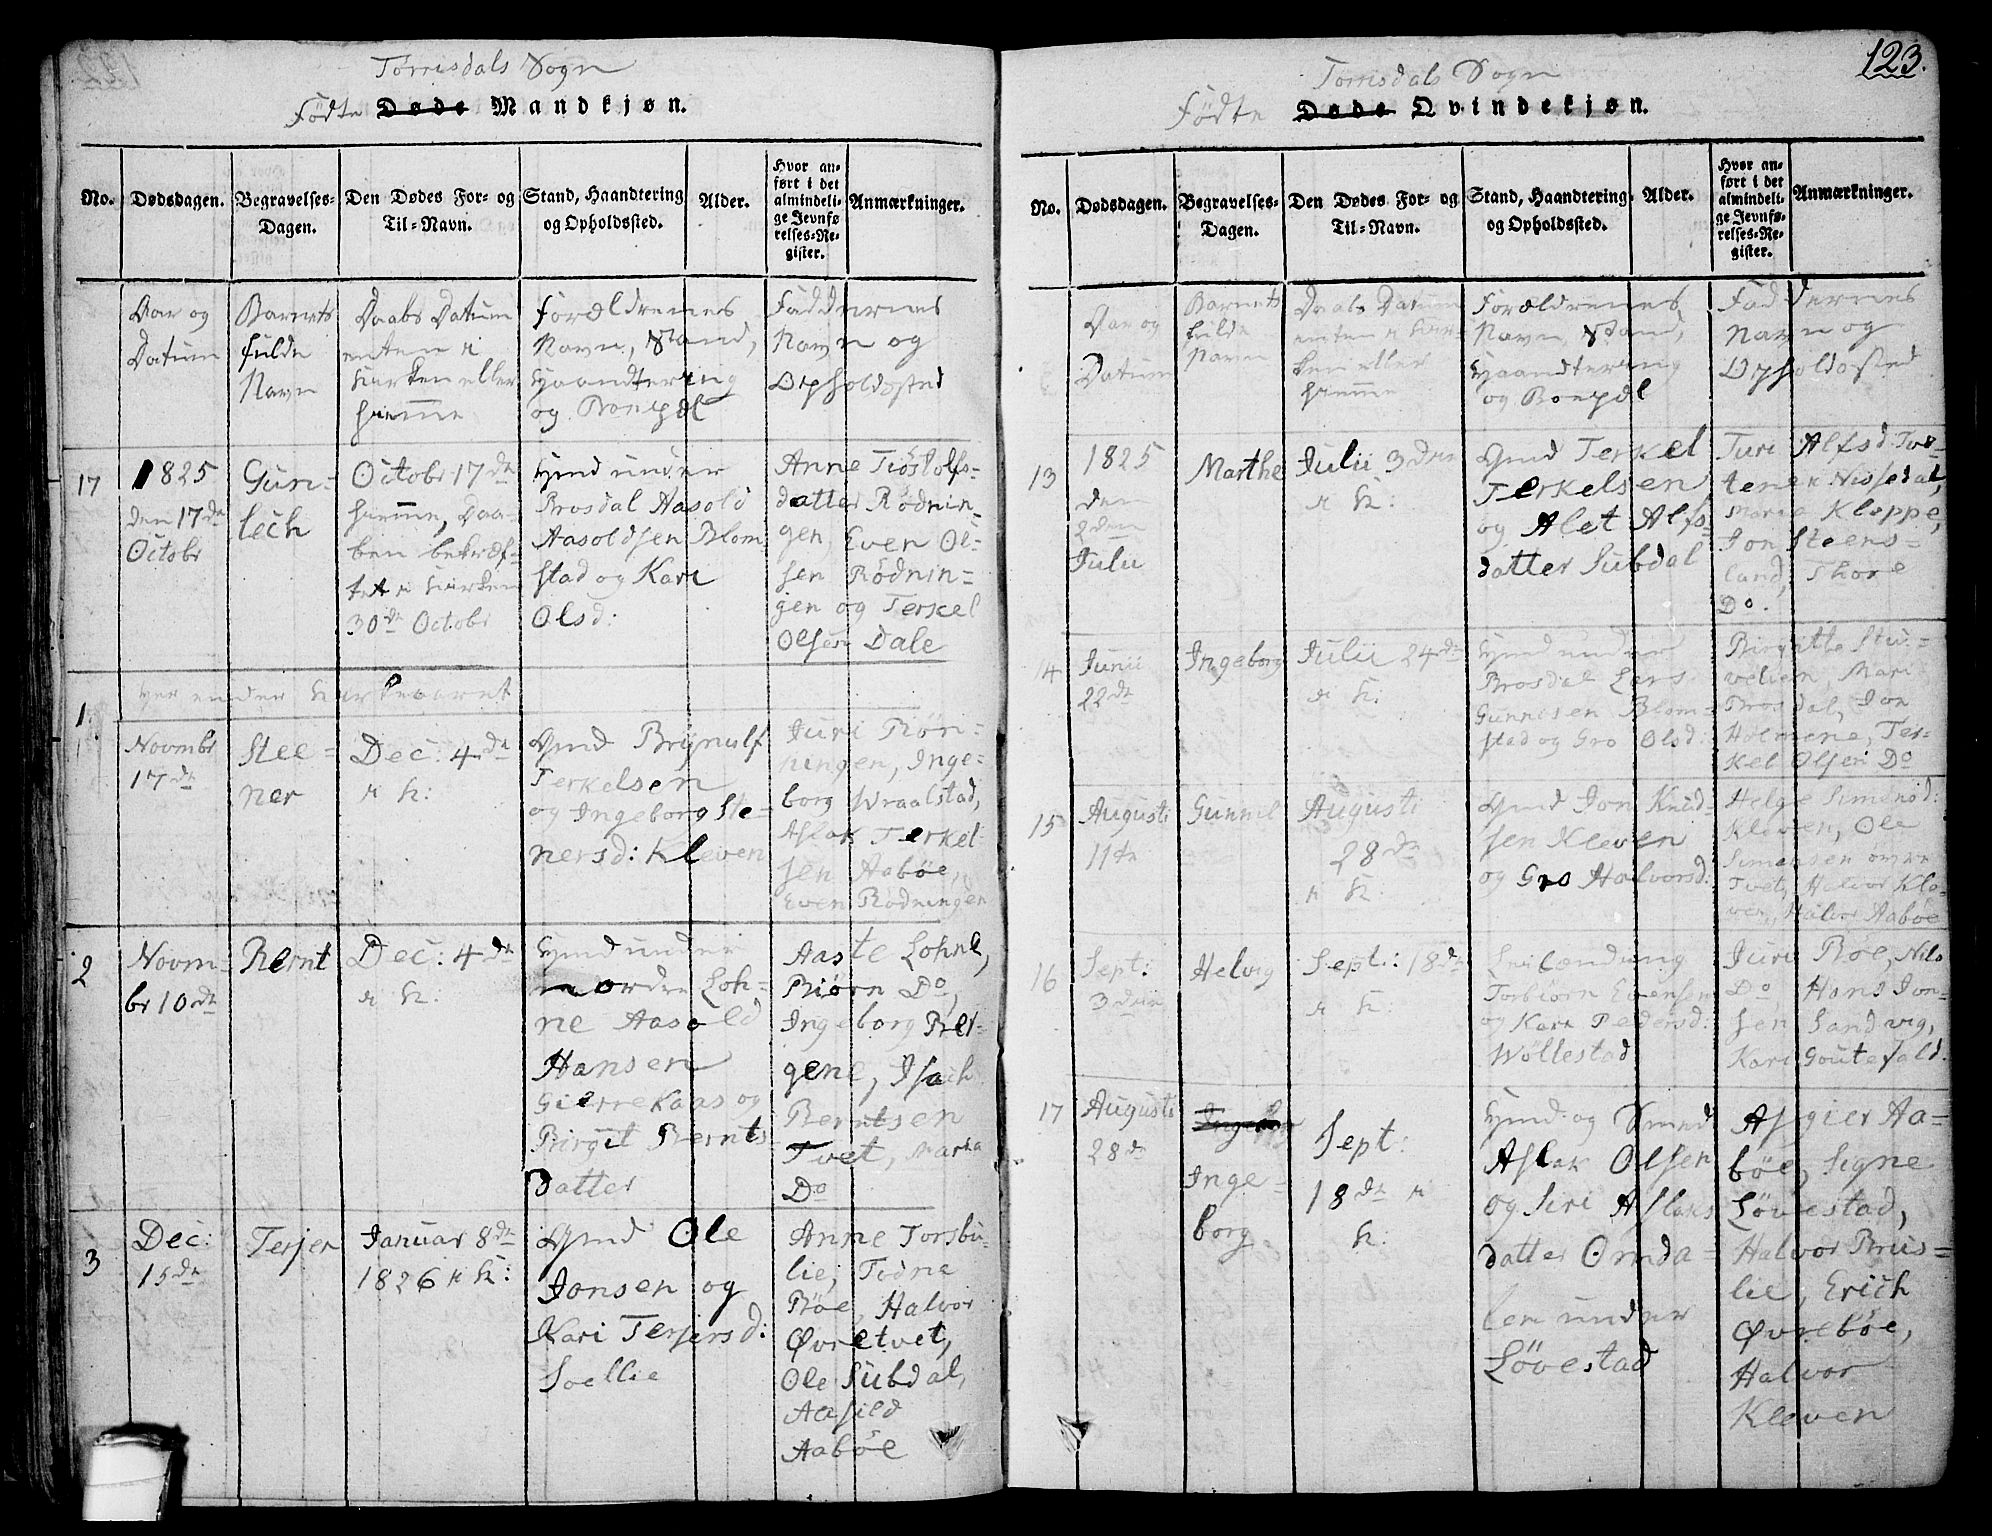 Torrisdals Sogn
Fødte Døde Mandkjøn.
No.
Dødsdagen.
Begravelses-
Dagen.
Den Dødes For- og
Til-Navn.
Stand, Haandtering
og Opholdssted.
Alder.
Hvor an-
ført i det
almindeli-
ge Jevnfø
relses-Re-
gister.
Anmærkninger.
Aar og
Datum
Barnets
fulde
Navn
Daabs Datum
enten i
Kirken eller
hiemme
Forældrenes
Navn, Stand,
Haandtering
og Boepæl
Faddernes
Navn og
Opholdssted
17
1825
den 17de
Octobr
Gun-
lech
Octobr 17de
hiemme, Daa-
ben bekræf-
tet i Kirken
30de Octobr
Hmd under
Brosdal Aasold
Aasoldsen Blom-
stad og Kari
Olsd:
Anne Tiøstolfs-
datter Rødnin-
gen, Even Ol-
sen Rødnin-
gen og Terkel
Olsen Dale
Her ender Kirkeaaret
1.
Novmbr
17de
Stee-
ner
Dec: 4de
i K:
Gmd Brynulf
Terkelsen
og Ingeborg Ste-
nersd: Kleven
Juri Røn-
ningen, Inge-
borg Wraalstad,
Aslak Terkel-
sen Aabøe,
Even Rødningen
2
Novm-
br 10de
Bernt
Dec: 4de
i K:
Hmd under
nordre Loh-
ne Aasold
Hansen
Gierrekaas og
Birgit Bernts
datter
Aaste Lohne,
Biørn Do,
Ingeborg Ber-
gene, Isach
Berntsen
Tvet, Maria
Do
3
Dec:
15de
Terjer
Januar 8de
1826 i K:
Gmd Ole
Jonsen og
Kari Terjersd:
Soellie
Anne Torsbu-
lie, Todne
Bøe, Halvor
Øvretvet,
Ole Subdal,
Aasild
Aabøe
123.
Torrisdals Sogn
Fødte Døde Qvindekjøn.
No.
Dødsdagen.
Begravelses-
Dagen.
Den Dødes For- og
Til-Navn.
Stand, Haandtering
og Opholdssted.
Alder.
Hvor an-
ført i det
almindeli-
ge Jevnfø-
relses-Re-
gister.
Anmærkninger.
Aar og
Datum
Barnets
fulde
Navn
Daabs Datum
enten i Kir-
ken eller
hiemme
Forældrenes
Navn, Stand,
Haandtering
og Boepæl
Faddernes
Navn og
Opholdssted
13
1825
den
2den
Julii
Marthe
Julii 3den
i K:
Gmd Terkel
Terkelsen
og Alet Alfs-
datter Subdal
Turi Alfsd: Tve-
ten i Nissedal,
Marie Kleppe,
Jon Steens-
land, Thore
Do.
14
Junii
22de
Ingeborg
Julii 24de
i K:
Hmd under
Brosdal Lars
Gunnisen Blom-
stad og Gro Olsd:
Birgitte Stu-
velien, Mari
Brosdal, Jon
Holmene, Ter-
kel Olsen Do
15
Augusti
11te
Gunnil
Augusti
28de
i K:
Gmd Jon Knud-
sen Kleven
og Gro Halvorsd:
Helge Simensd:
Kleven, Ole
Simensen øvre
Tvet, Halvor Kle-
ven, Halvor Aabøe
16
Sept:
3den
Helvig
Sept: 18de
i K:
Leilændung
Torbiørn Evensen
og Kari Pedersd:
Wøllestad
Juri Bøe, Nils
Do, Hans Jon-
sen Sandvig,
Kari Goutefald.
17
Augusti
28de
Inge-
borg
Sept:
18de i
K:
Hmd og Smed
Aslak Olsen
og Siri Aslaks
datter Omda-
len under
Løvestad
Asgier Aa-
bøe, Signe
Løvestad,
Halvor Brus-
lie, Erich
Øvrebøe,
Halvor
Kleven